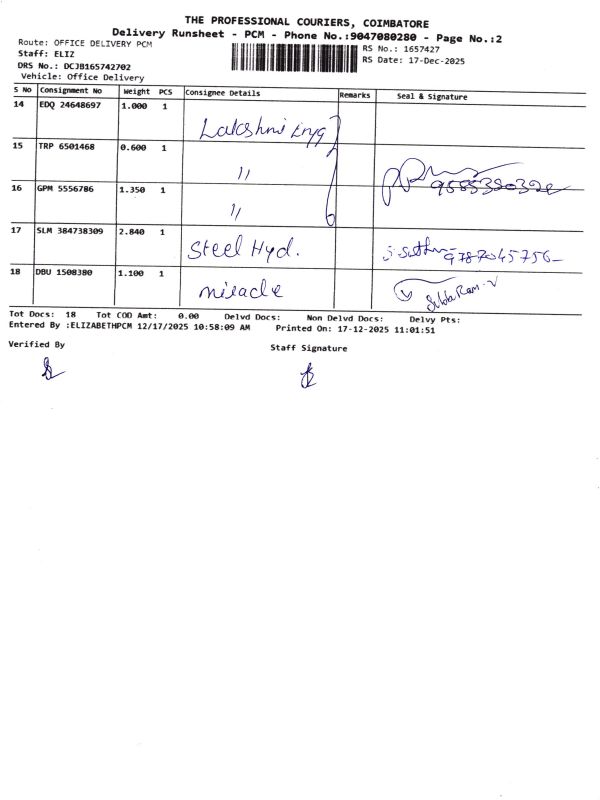 THE PROFESSIONAL COURIERS, COIMBATORE
Delivery Runsheet - PCM - Phone No.:9047080280 - Page No.:2
Route: OFFICE DELIVERY PCM
RS No.: 1657427
Staff: ELIZ
RS Date: 17-Dec-2025
DRS No.: DCJB165742702
Vehicle: Office Delivery
S No Consignment No Weight PCS Consignee Details Remarks Seal & Signature
14 EDQ 24648697 1.000 1 Lakshmi Engg
15 TRP 6501468 0.600 1 "
16 GPM 5556786 1.350 1 "
17 SLM 384738309 2.840 1 Steel Hyd. 9787045756
18 DBU 1508380 1.100 1 miracle
Tot Docs: 18 Tot COD Amt: 0.00 Delvd Docs: Non Delvd Docs: Delvy Pts:
Entered By :ELIZABETHPCM 12/17/2025 10:58:09 AM Printed On: 17-12-2025 11:01:51
Verified By
Staff Signature